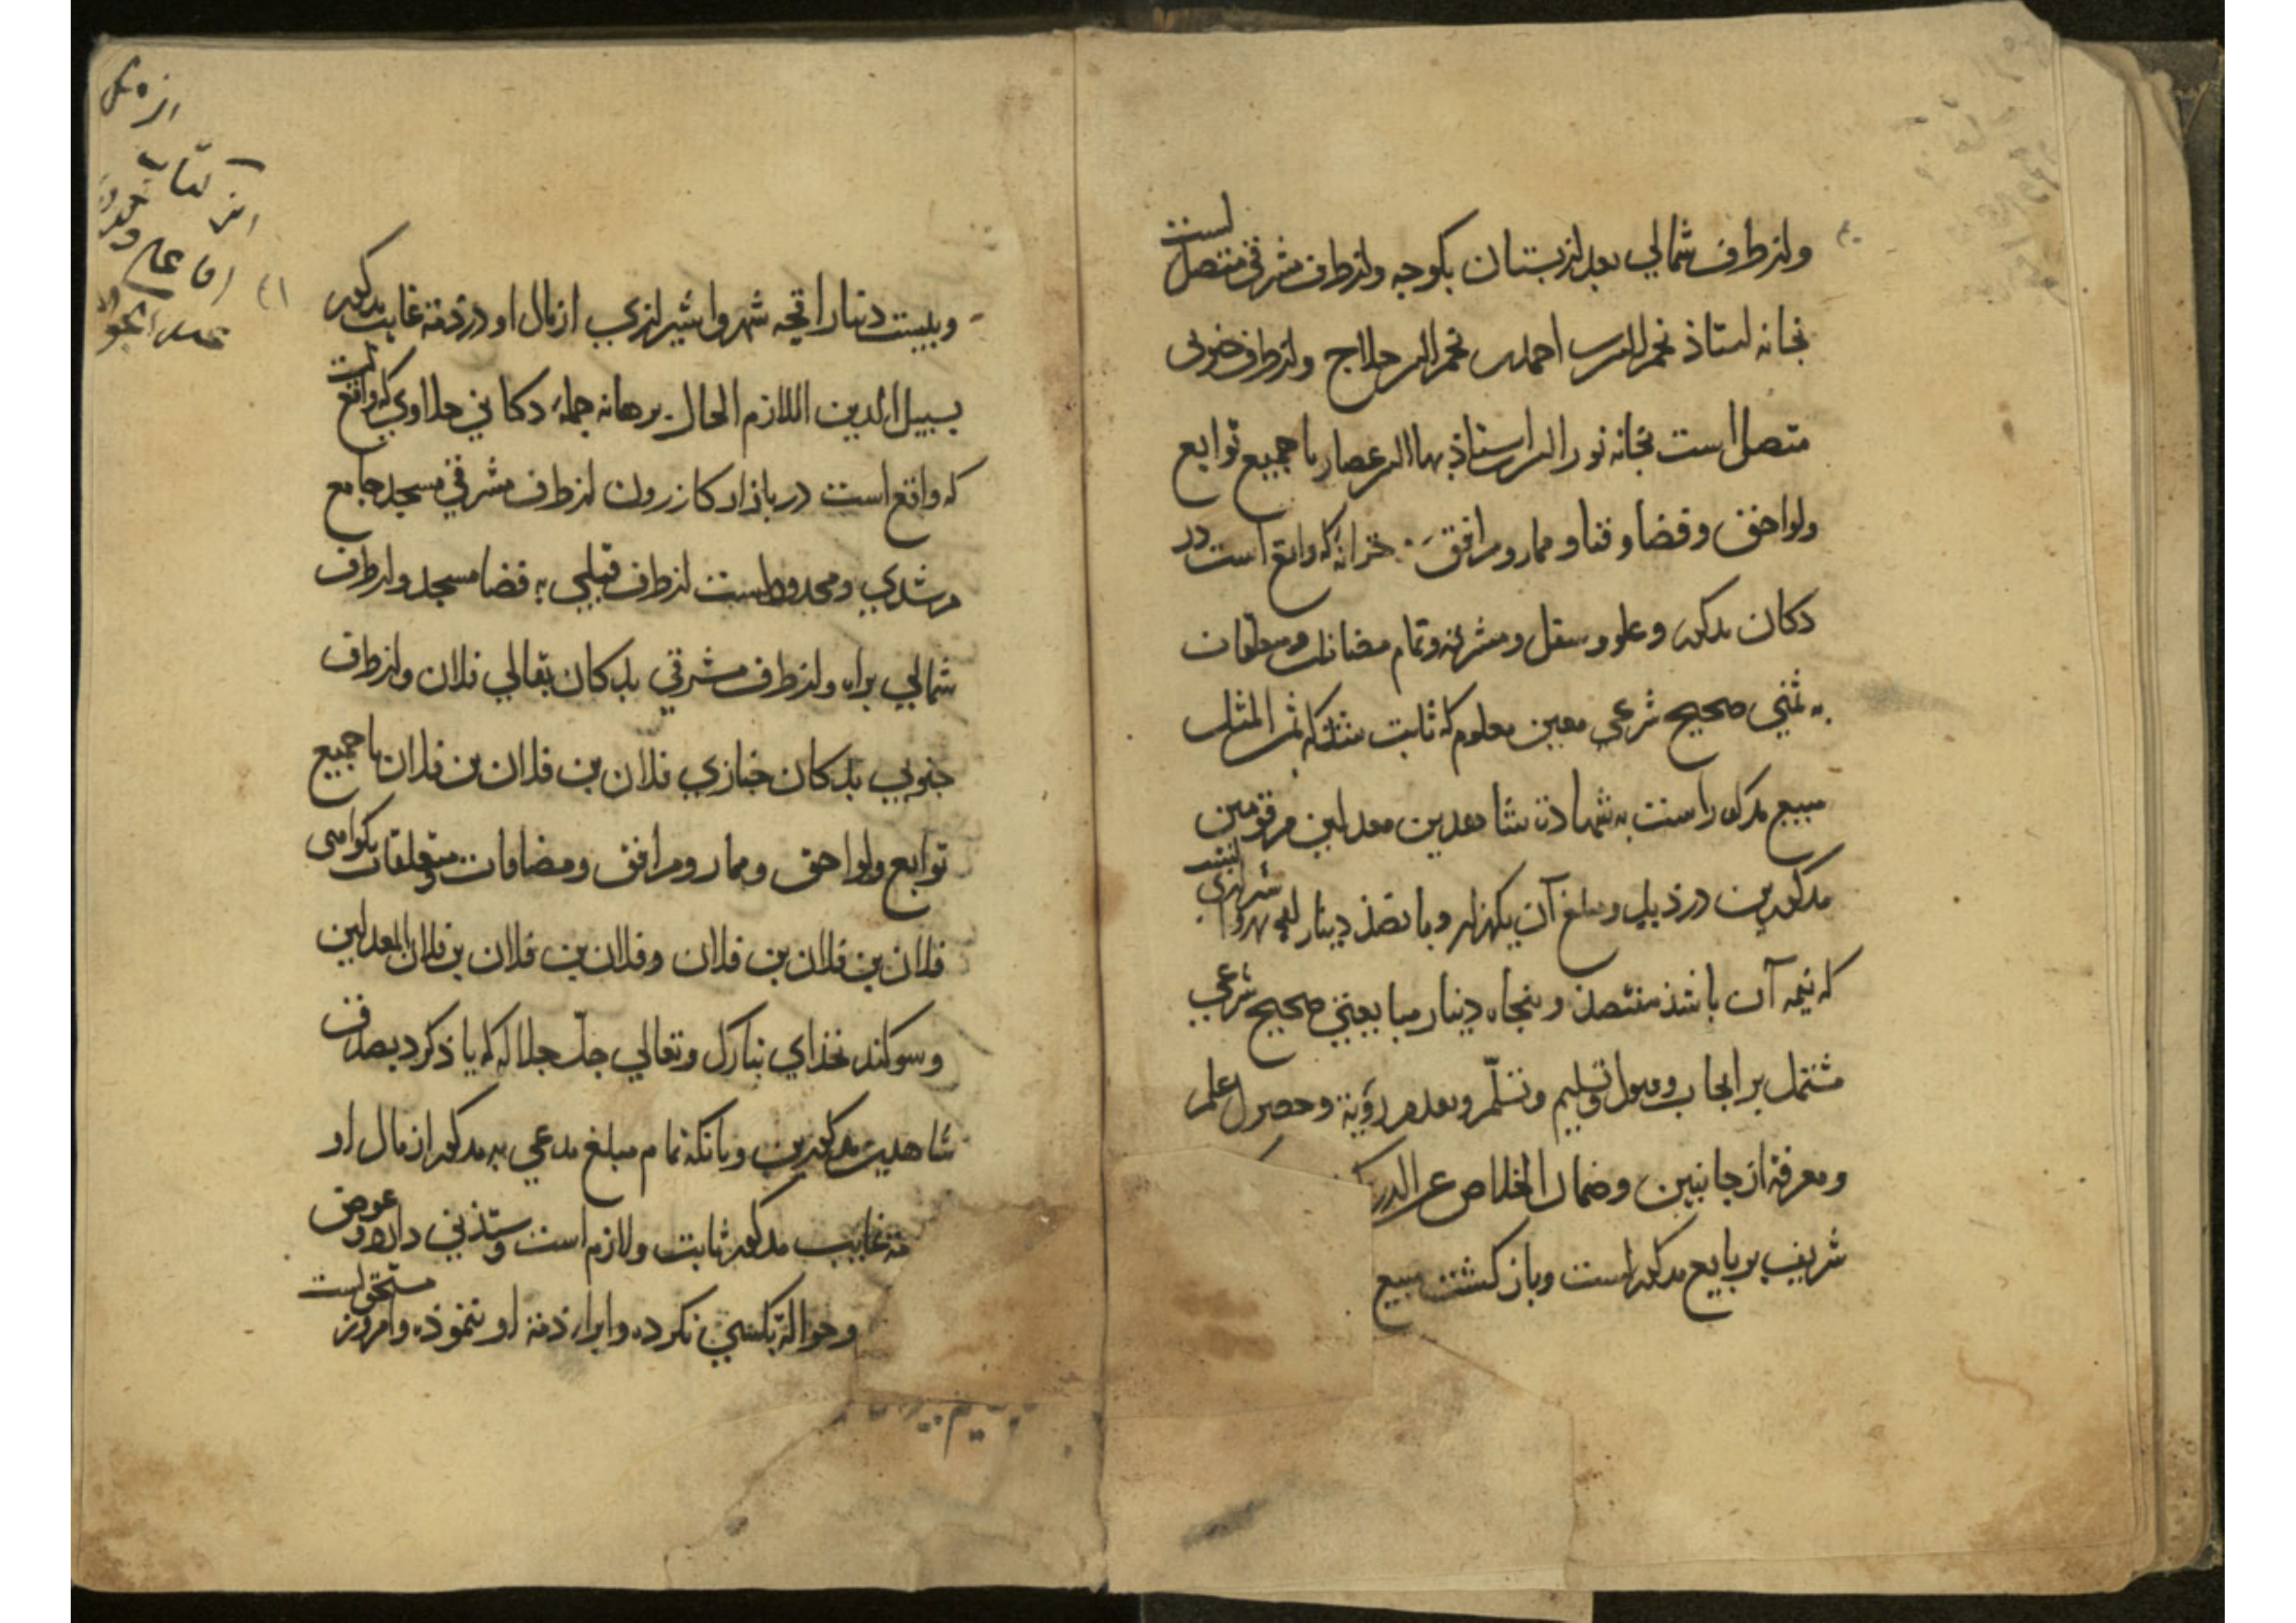 واز طرف شمالی بعد از بستان بکوجه واز طرف مشرقی متصل است
بخانه استاذ نجم الدین احمد بن نجم الدین حلاج واز طرف جنوبی
متصل است بخانه نور الدین استاذ بهاالدین عصار با جمیع توابع
ولواحق وفضا وفنا وممار ومرافق خزانهٔ که واقع است در
دکان مذکور وعلو وسفل ومشرفه وتمام مضافات ومتعلقات
به ثمنی صحیح شرعی معین معلوم که ثابت شد که ثمن المثل
مبیع مذکور است به شهادة شاهدین معدلین مرقومین
مذکورین در ذیل ومبلغ آن یکهزار وپانصد دینار شیرازی
که نیمه آن باشد هفتصد وپنجاه دینار مبایعتی صحیح شرعی
مشتمل بر ایجاب وقبول وتسلیم وتسلّم وبعد از رؤیة وحصول علم
ومعرفة از جانبین وضمان الخلاص عن الدرک
شریف بر بایع مذکور است وباز کشت مبیع
٤٠
وبیست دینار اقچه شهروا شیرازی از مال او در ذمة غایب مذکور
بسبیل الدین اللازم الحال برهانه جمله دکانی حلاوی که واقع است
که واقع است در بازار کازرون از طرف مشرقی مسجد جامع
مرشدی ومحدود است از طرف قبلی به فضا مسجد واز طرف
شمالی براه واز طرف مشرقی بدکان بقالی فلان واز طرف
جنوبی بدکان خبازی فلان بن فلان بن فلان با جمیع
توابع ولواحق وممار ومرافق ومضافات ومتعلقات بکواهی
فلان بن فلان بن فلان وفلان بن فلان بن فلان المعدلین
وسوکند بخدای تبارک وتعالی جلّ جلاله که یاذ کرد بصدق
شاهدین مذکورین وبانکه تمام مبلغ مدعی به مذکور از مال او
مة غایب مذکور ثابت ولازم است وستذنی دارد وعوض
وحوالة بکسی نکرده وابراء ذمة او ننموذه وامروز مستحق است
٤١
کتاب